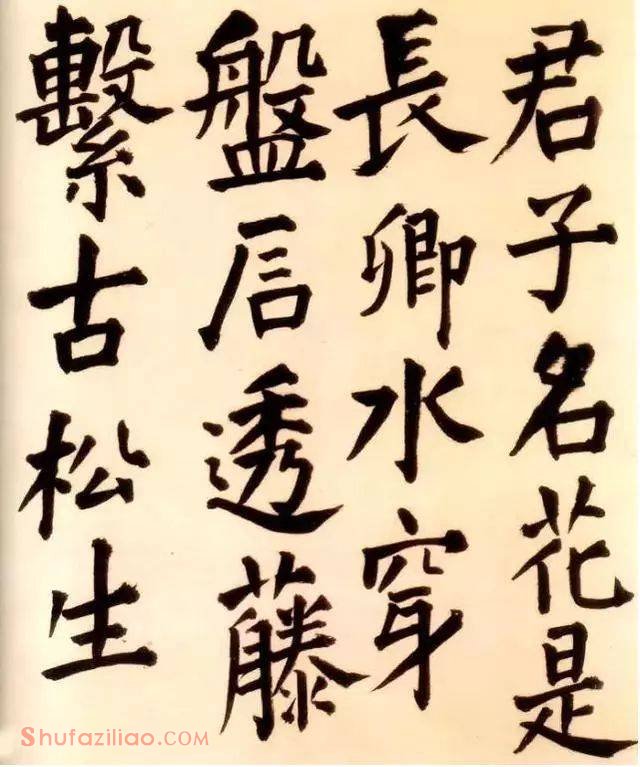 君子名花是
長卿水穿
盤石透藤
繫古松生
Shufaziliao.COM